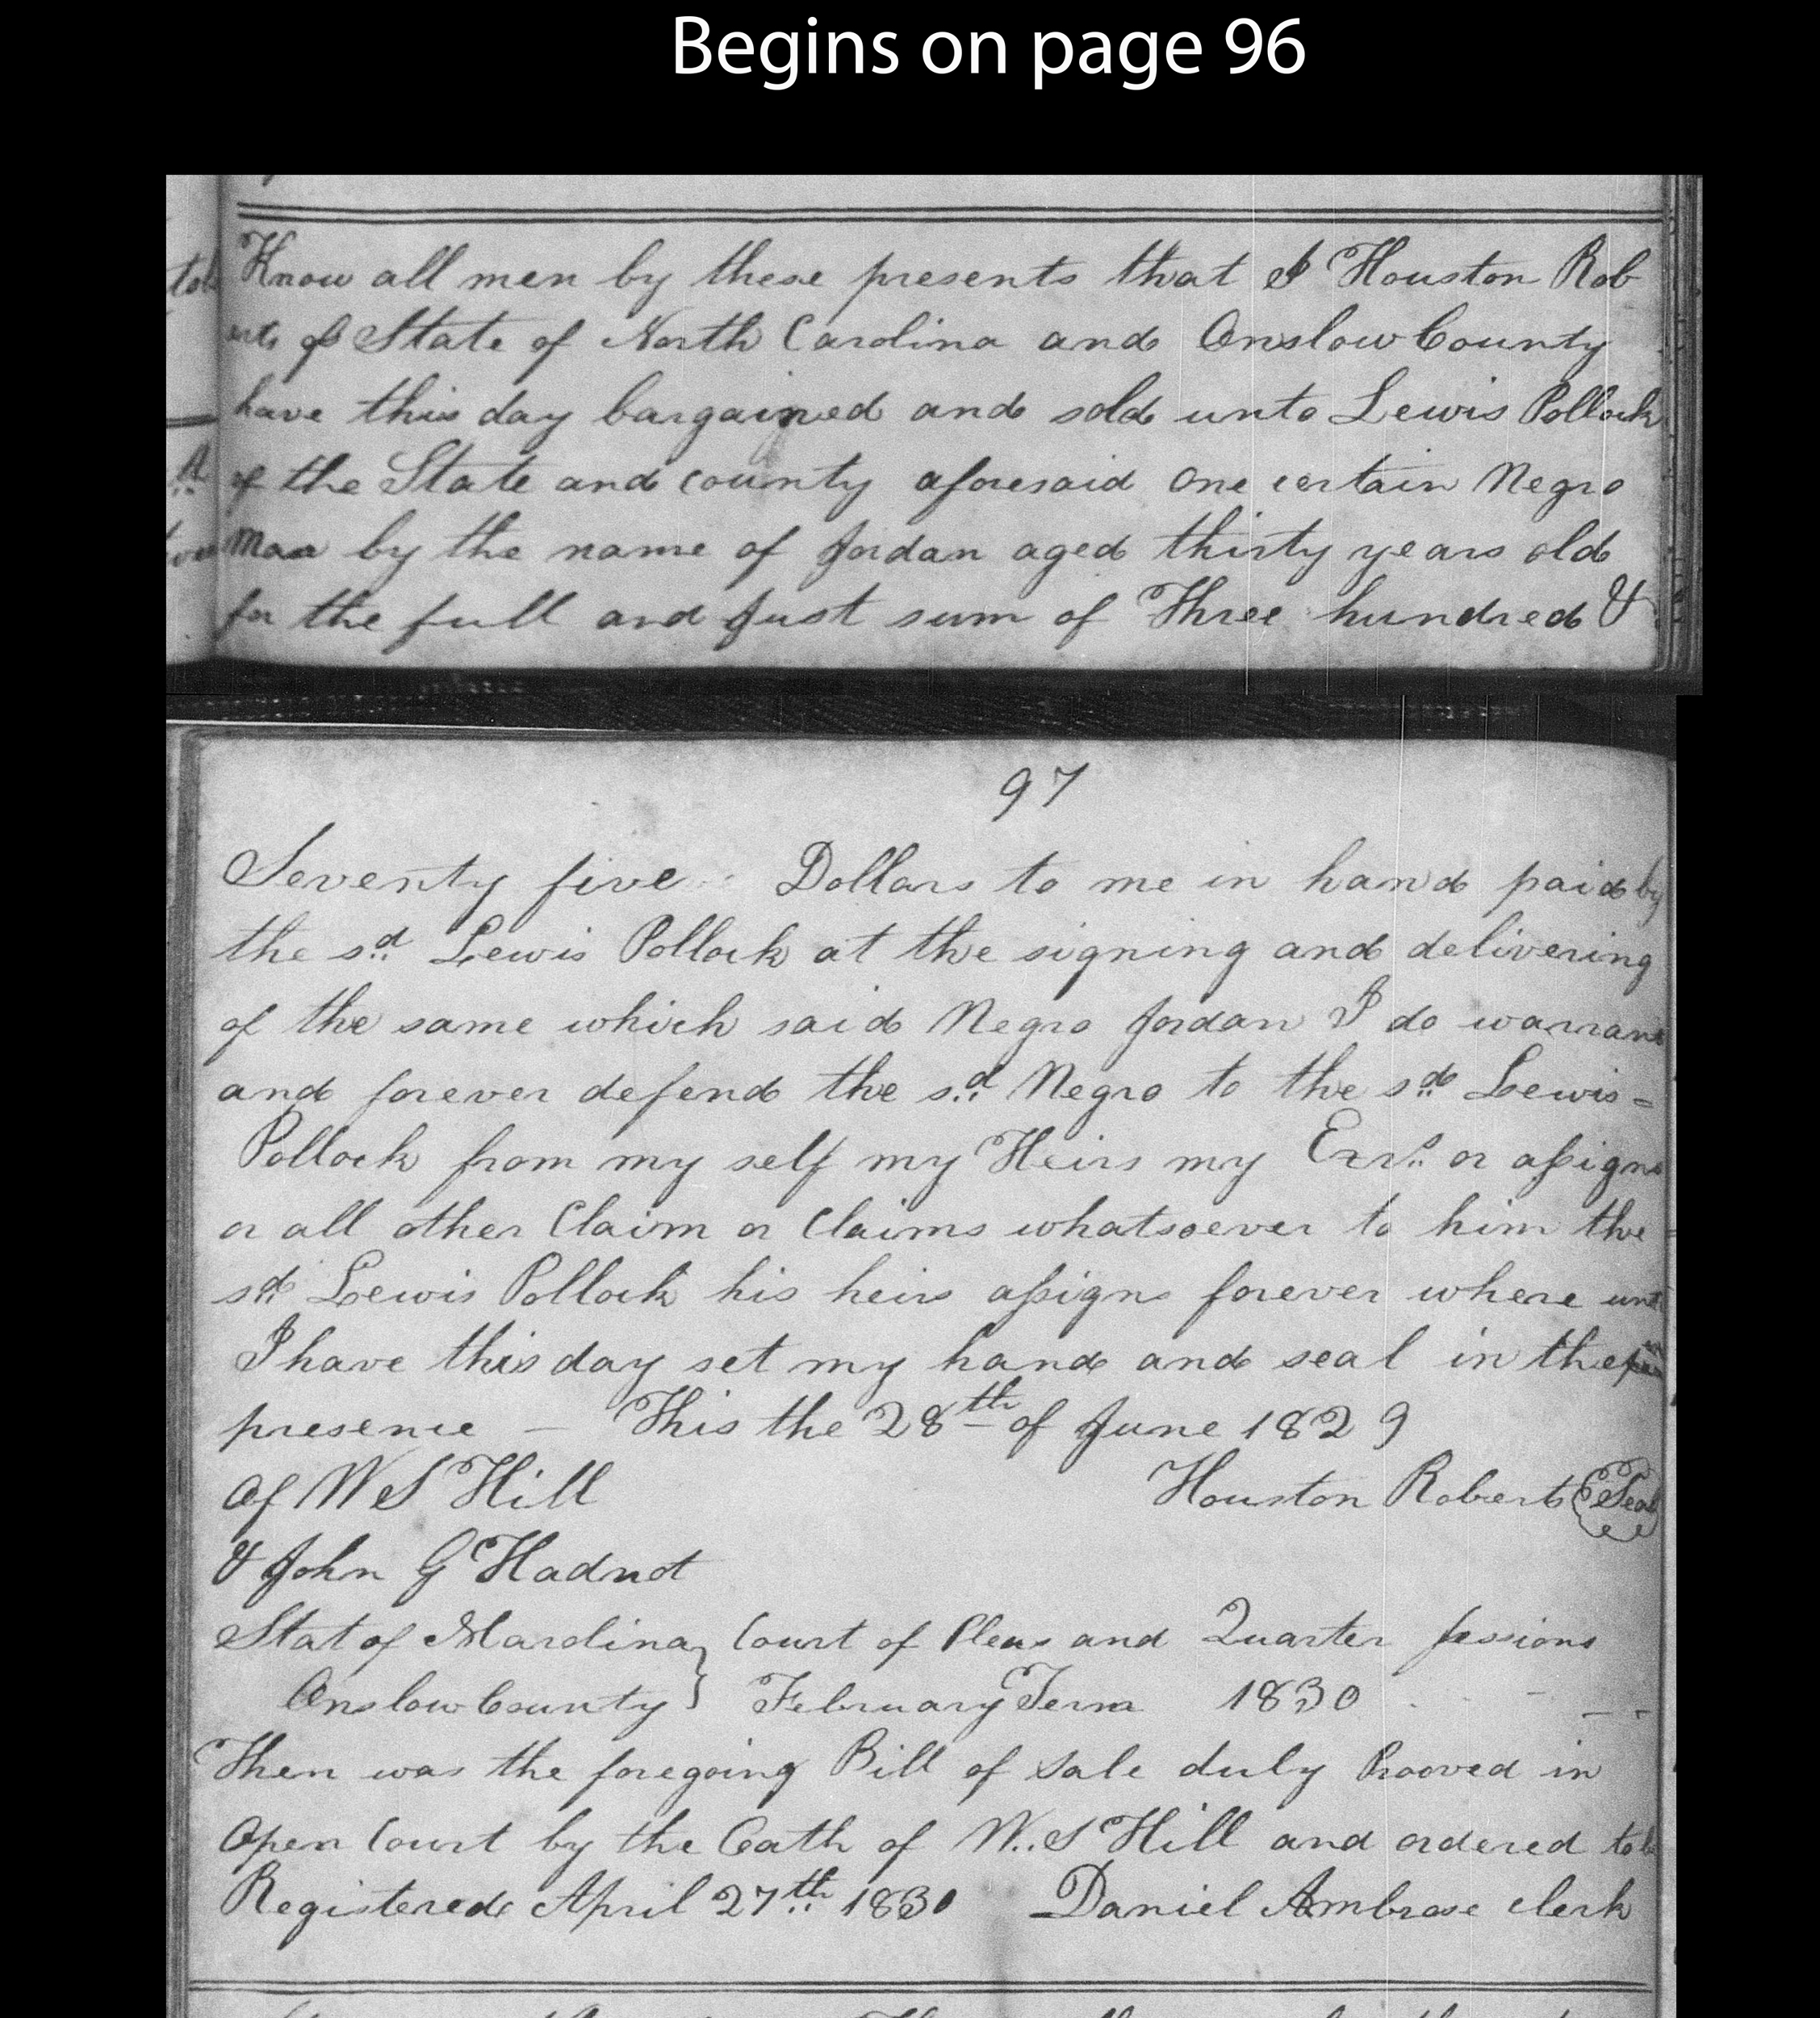 Begins on page 96
Know all men by these presents that I Houston Rob
erts of State of North Carolina and Onslow County
have this day bargained and sold unto Lewis Pollock
of the State and county aforesaid One certain Negro
Man by the name of Jordan aged thirty years old
for the full and Just sum of Three hundred &
97
Seventy five Dollars to me in hand paid by
the sd. Lewis Pollock at the signing and delivering
of the same which said Negro Jordan I do warrant
and forever defend the sd. Negro to the sd. Lewis =
Pollock from my self my Heirs my Exrs. or assigns
or all other Claim or Claims whatsoever to him the
sd. Lewis Pollock his heirs assigns forever where unto
I have this day set my hand and seal in the
presence — This the 28th of June 1829
Of W S Hill Houston Roberts Seal
& John G Hadnot
Stat of NCarolina } Court of Pleas and Quarter Sessions
Onslow County } February Term 1830
Then was the foregoing Bill of Sale duly Prooved in
Open Court by the Oath of W. S Hill and ordered to be
Registered April 27th. 1830 Daniel Ambrose clerk